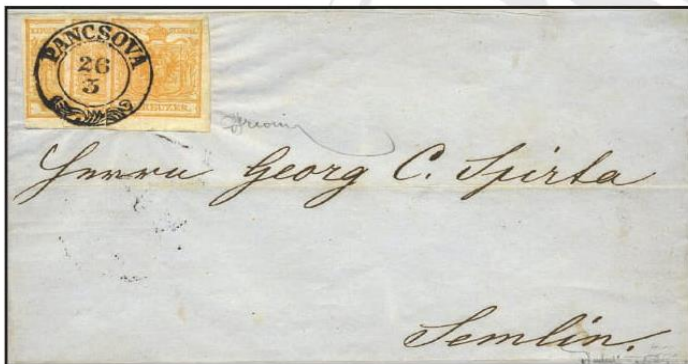 PANCSOVA
26
3
KREUZER.
Herrn Georg C. Spirta
Semlin.